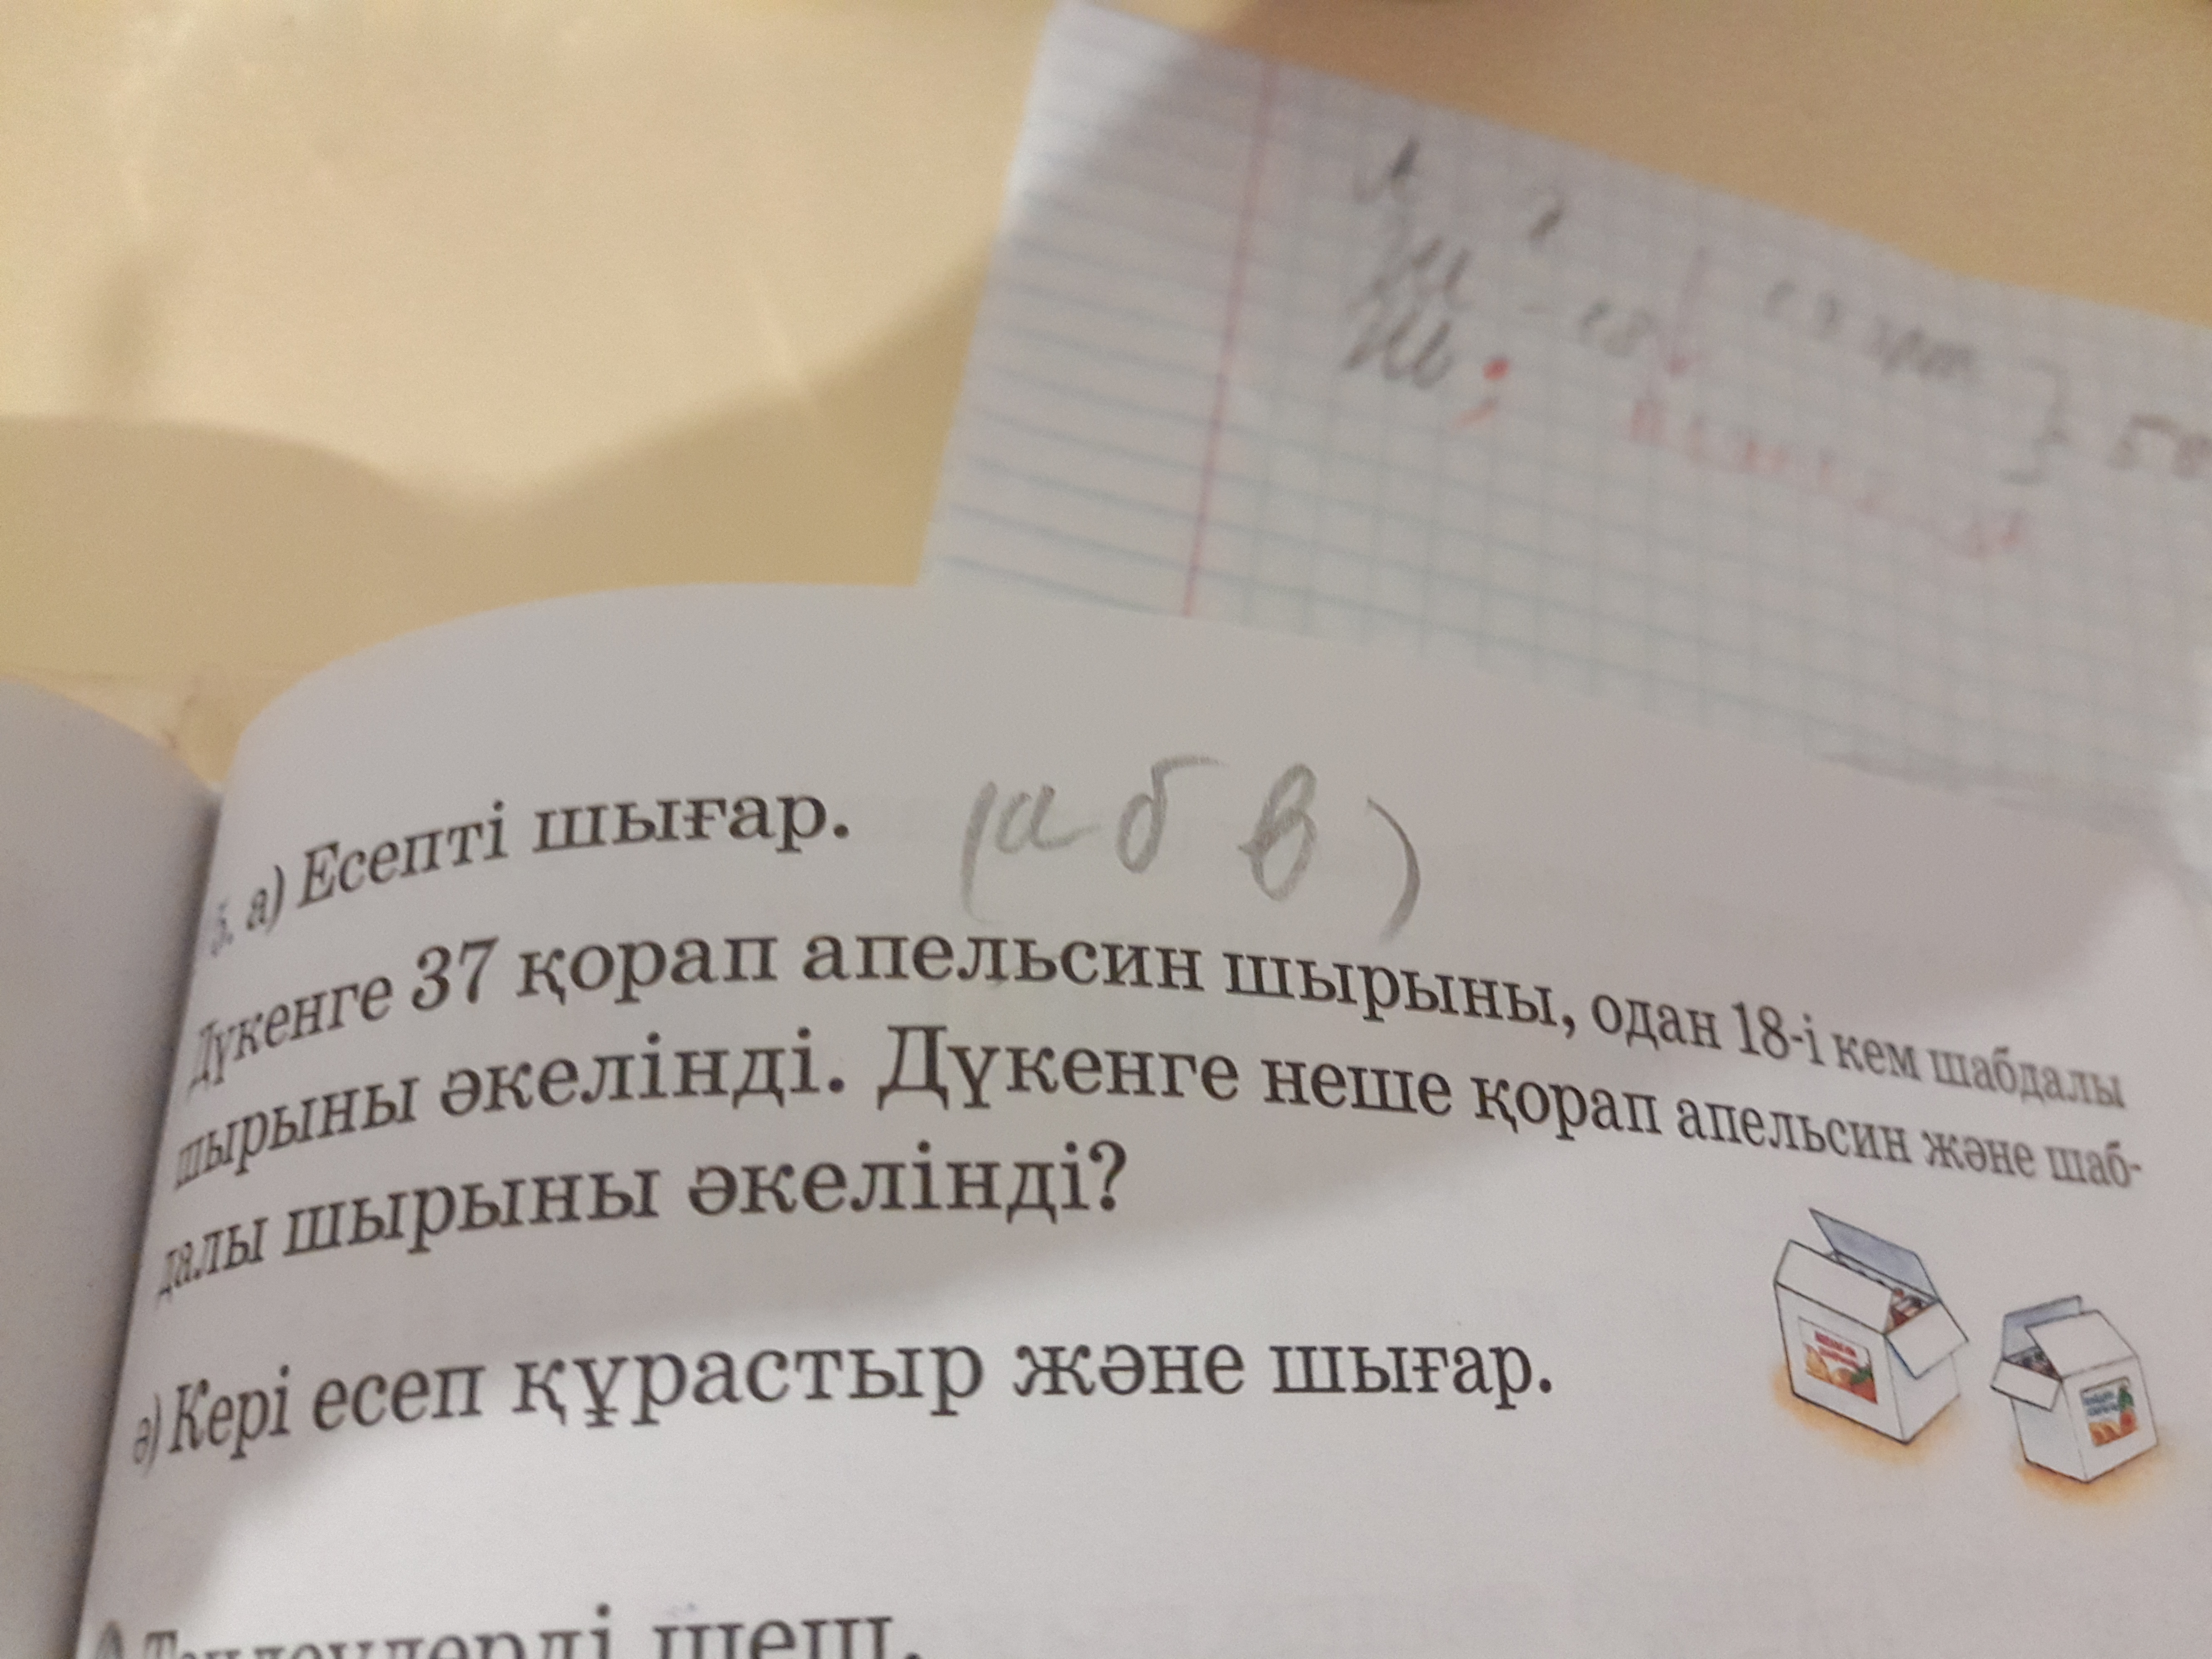 ? 
- 18
} 50
5. а) Есепті шығар. (а б в)
Дүкенге 37 қорап апельсин шырыны, одан 18-і кем шабдалы
шырыны әкелінді. Дүкенге неше қорап апельсин және шаб-
далы шырыны әкелінді?
ә) Кері есеп құрастыр және шығар.
шеш.